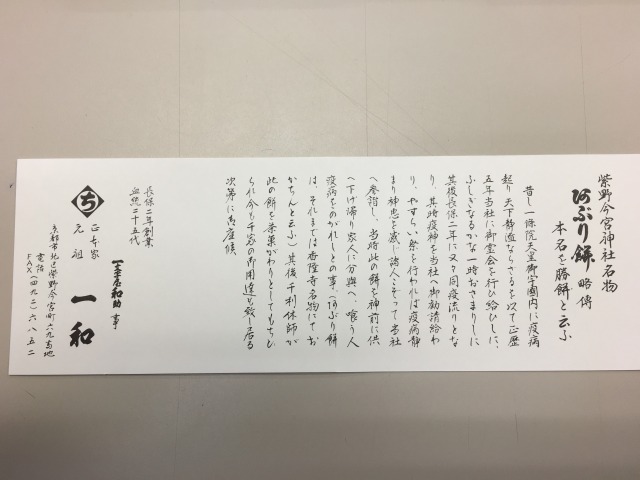 紫野今宮神社名物
あぶり餅 略傳
本名を勝餅と云ふ
昔し一條院天皇御宇國内に疫病
起り天下静謐ならざるを以て正歴
五年当社に御霊会を行ひ給ひしに、
ふしぎなるかな一時おさまりしに
其後長保二年に又々同疫流りとな
り、其時疫神を当社へ御勧請給わ
り、やすらい祭を行われば疫病静
まり神恵を感じ諸人こぞって当社
へ参詣し、当時此の餅を神前に供
へ下げ帰り家人に分與へ、喰う人
疫病をのがれしとの事、(阿ぶり餅
は、それまでは香隆寺名物にてお
かちんと云ふ)其後千利休師が
此の餅を茶菓がわりとしてもちひ
られ今も千家の御用達を致し居る
次第に御座候
長保二年創業
血統二十五代
一文字屋和助 事
ち
正本家
元祖
一和
京都市北区紫野今宮町六九番地
電話
FAX(四九二)六八五二